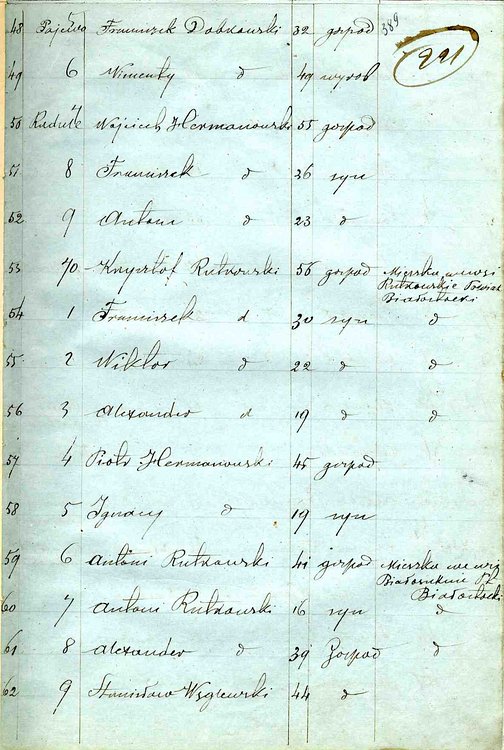 389
221
48 Pajewo 5 Franciszek Dobkowski 32 gospod
49 6 Wincenty d 49 wyrob
50 Raduле 7 Wojciech Hermanowski 55 gospod
51 8 Franciszek d 26 syn
52 9 Antoni d 23 d
53 70 Krzysztof Rutkowski 56 gospod Mieszka we wsi
Rutkowskie Powiat
Białostocki
54 1 Franciszek d 30 syn d
55 2 Wiktor d 22 d d
56 3 Alexander d 19 d d
57 4 Piotr Hermanowski 45 gospod
58 5 Ignacy d 19 syn
59 6 Antoni Rutkowski 41 gospod Mieszka we wsi
Białostocki
60 7 Antoni Rutkowski 16 syn d
61 8 Alexander d 39 Gospod d
62 9 Stanisław Węglewski 44 d